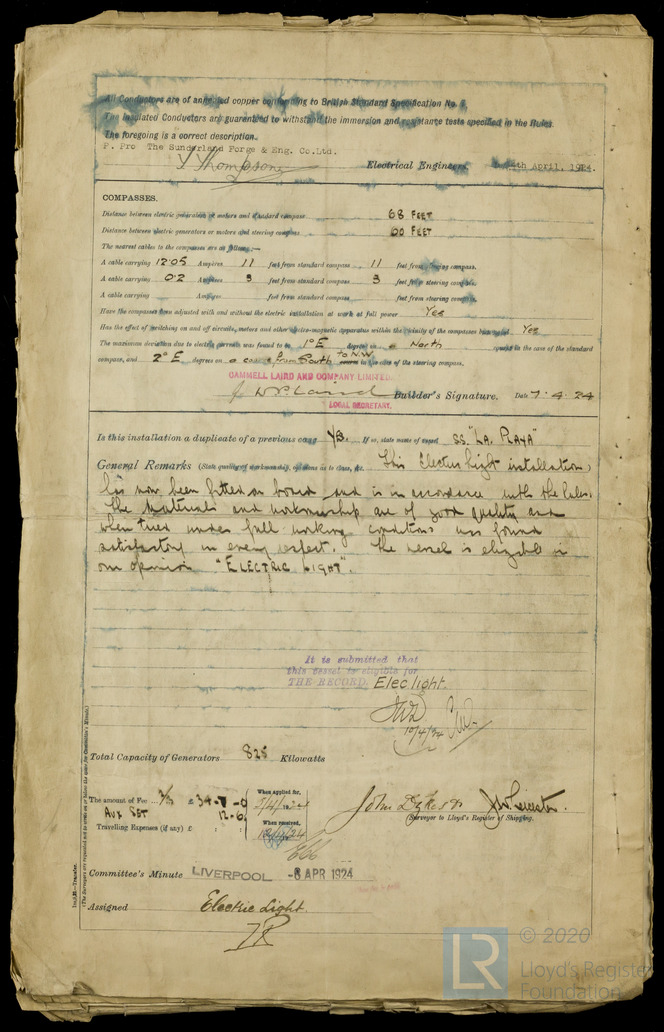 All Conductors are of annealed copper conforming to British Standard Specification No. 7.
The Insulated Conductors are guaranteed to withstand the immersion and resistance tests specified in the Rules.
The foregoing is a correct description.
P. Pro The Sunderland Forge & Eng. Co.Ltd.
Thompson Electrical Engineers. April, 1924.
COMPASSES.
Distance between electric generators or motors and standard compass 68 FEET
Distance between electric generators or motors and steering compass 60 FEET
The nearest cables to the compasses are as follows:—
A cable carrying 12.05 Amperes 11 feet from standard compass 11 feet from steering compass.
A cable carrying 0.2 Amperes 3 feet from standard compass 3 feet from steering compass.
A cable carrying Amperes feet from standard compass feet from steering compass.
Have the compasses been adjusted with and without the electric installation at work at full power Yes
Has the effect of switching on and off circuits, motors and other electro-magnetic apparatus within the vicinity of the compasses been noted Yes
The maximum deviation due to electric currents was found to be 1° E degrees on a North course in the case of the standard
compass, and 2° E degrees on a course from South to N.W. course in the case of the steering compass.
CAMMELL LAIRD AND COMPANY LIMITED.
Laird Builder's Signature. Date 7.4.24
LOCAL SECRETARY.
Is this installation a duplicate of a previous case Yes. If so, state name of vessel SS. "LA PLAYA"
General Remarks (State quality of workmanship, opinions as to class, &c. This Electric light installation,
has now been fitted on board and is in accordance with the Rules.
The Materials and workmanship are of good quality and
when tried under full working conditions was found
satisfactory in every respect. The vessel is eligible in
our opinion "ELECTRIC LIGHT".
It is submitted that
this vessel is eligible for
THE RECORD. Elec light.
10/4/24
Total Capacity of Generators 82.5 Kilowatts
The amount of Fee £ 34-7-0 When applied for,
AUX SET 12-6
Travelling Expenses (if any) £ When received,
John Dykes
(Surveyor to Lloyd's Register of Shipping.
Committee's Minute LIVERPOOL -8 APR 1924
Assigned Electric Light.
Im.3.21—Transfer.
(The Surveyors are requested not to write on or below the space for Committee's Minute.)
LR
© 2020
Lloyd's Register
Foundation